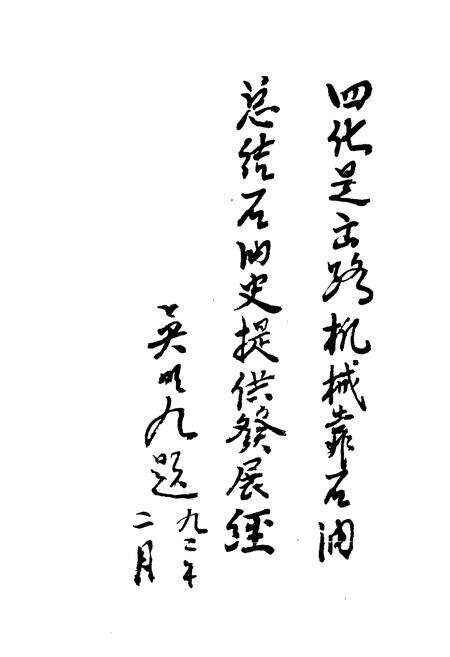 四化是出路机械靠石油
总结石油史提供發展経
英明九题
九二年
二月